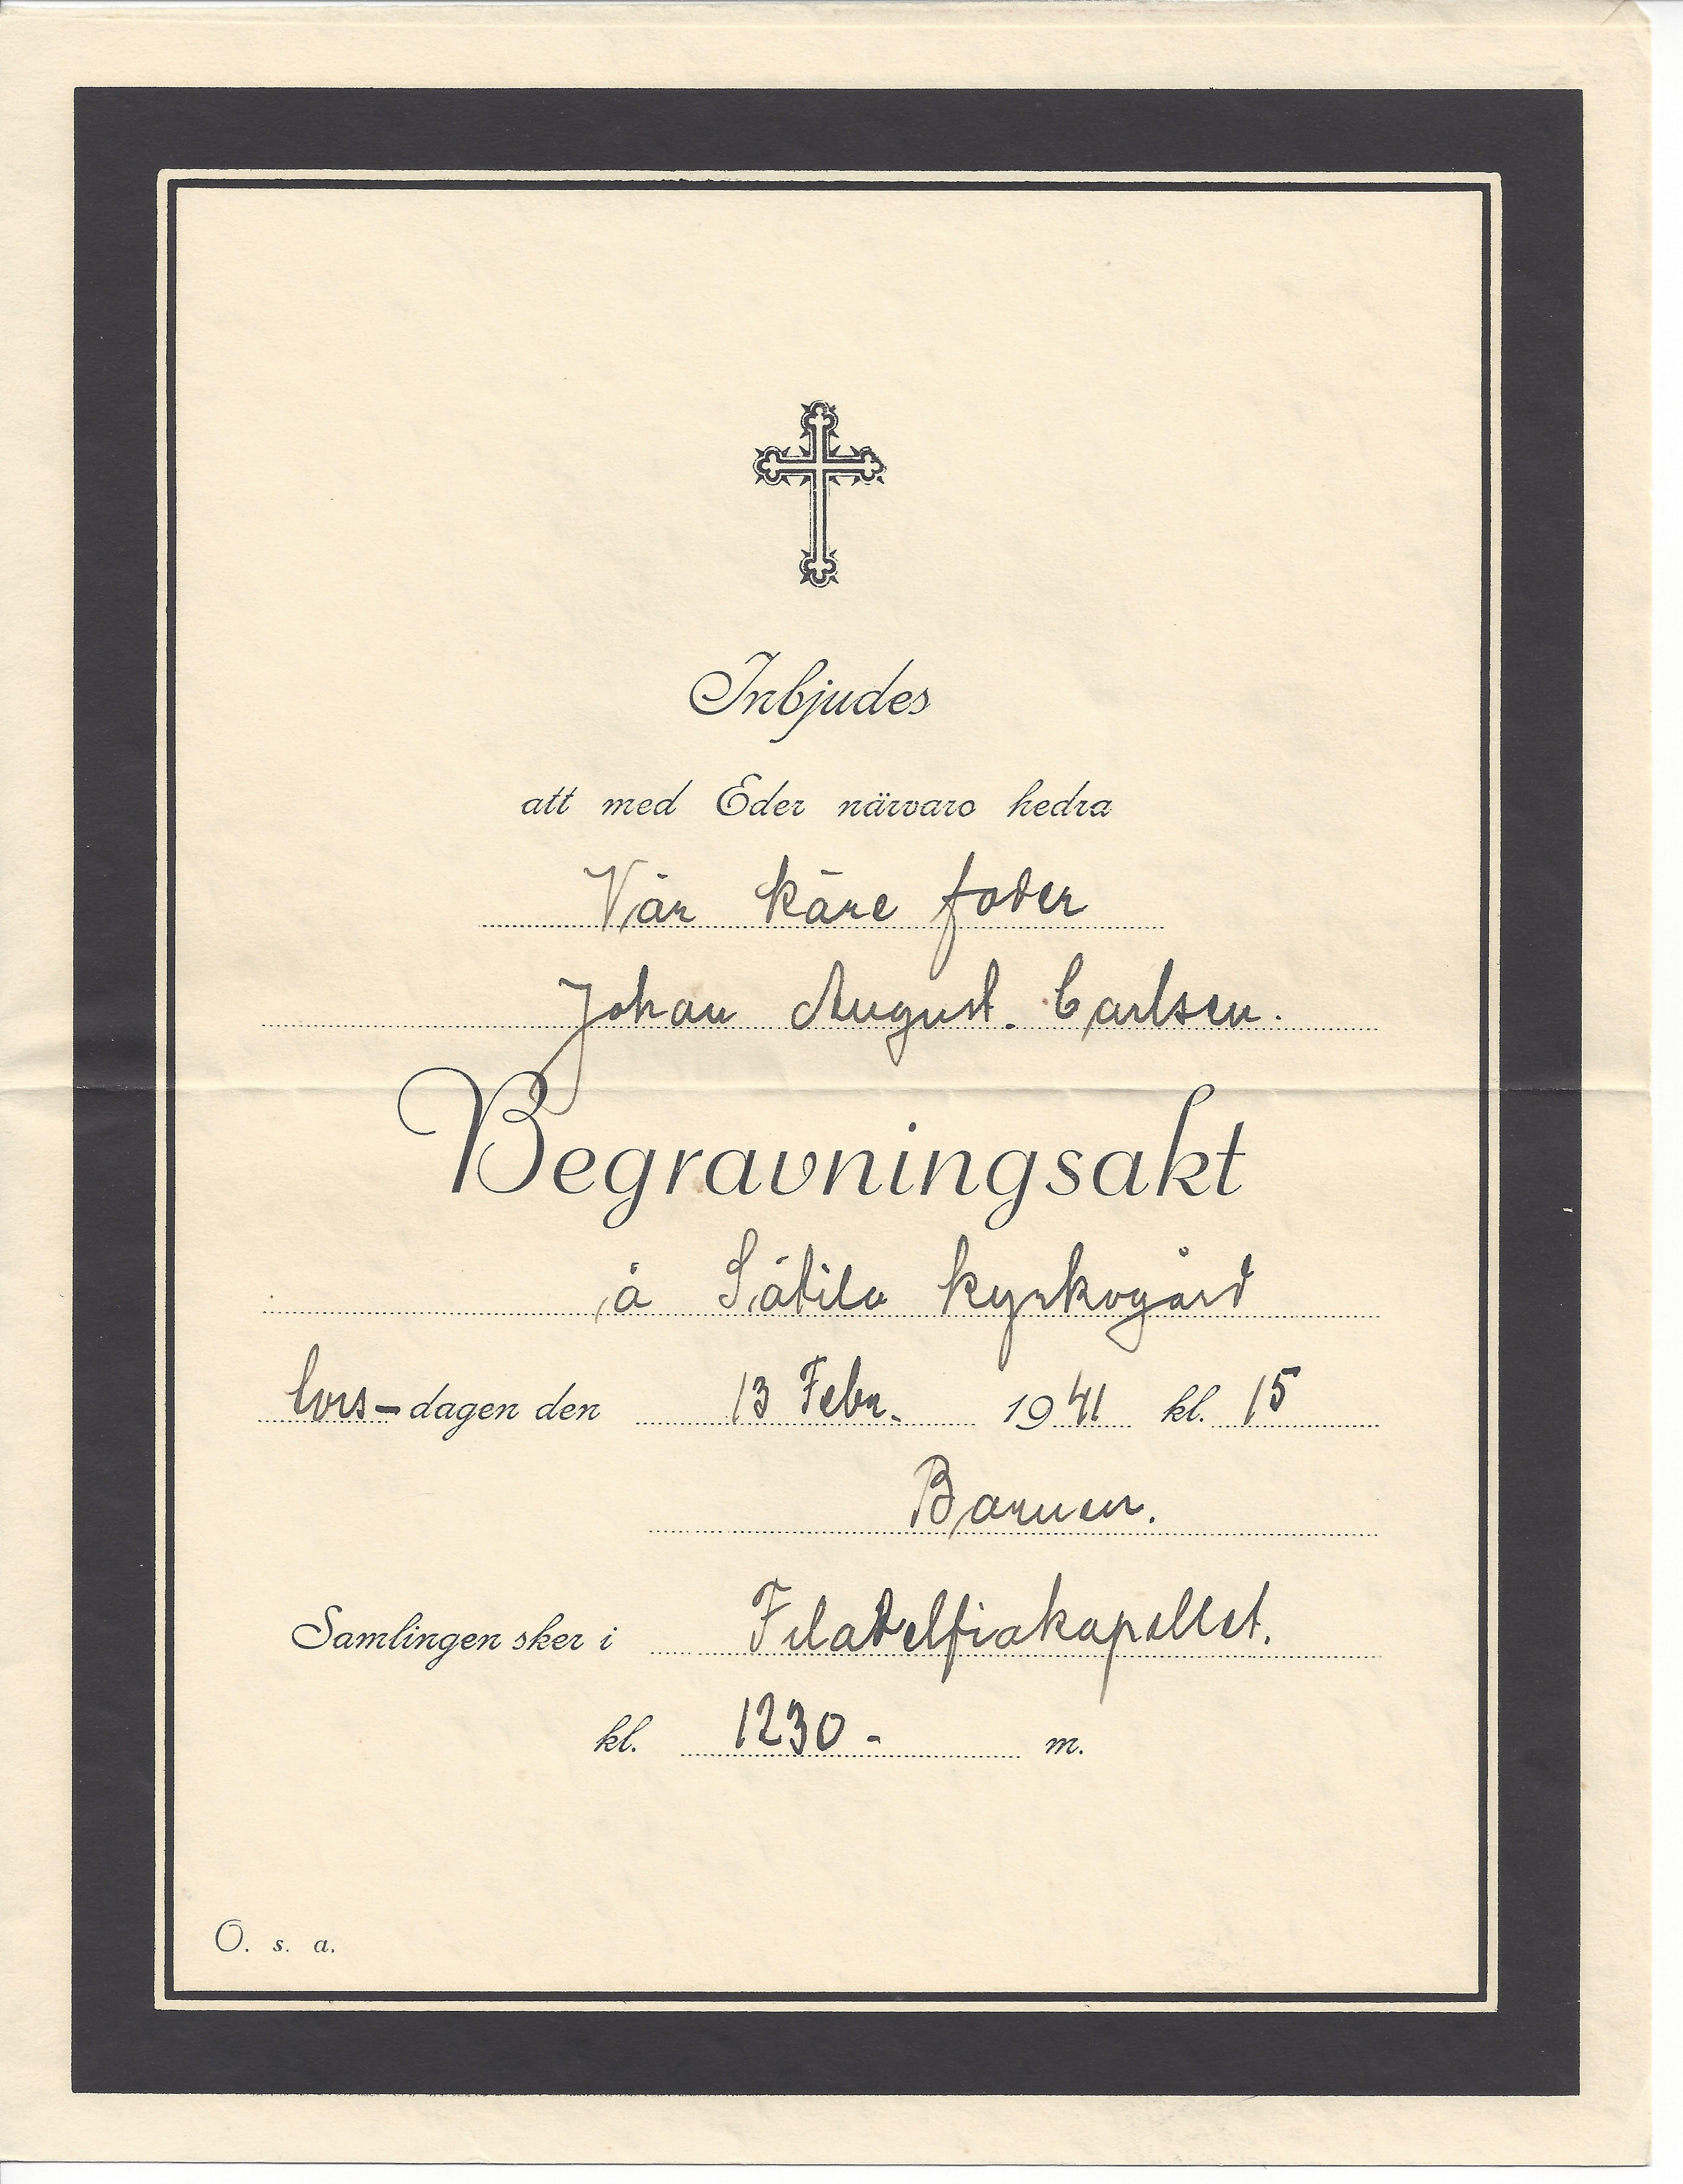 Inbjudes
att med Eder närvaro hedra
Vår käre fader
Johan August. Carlsen.
Begravningsakt
å Sätila kyrkogård
tors-dagen den 13 Febr. 1941 kl. 15
Barnen.
Samlingen sker i Filadelfiakapellet.
kl. 1230 - m.
O. s. a.